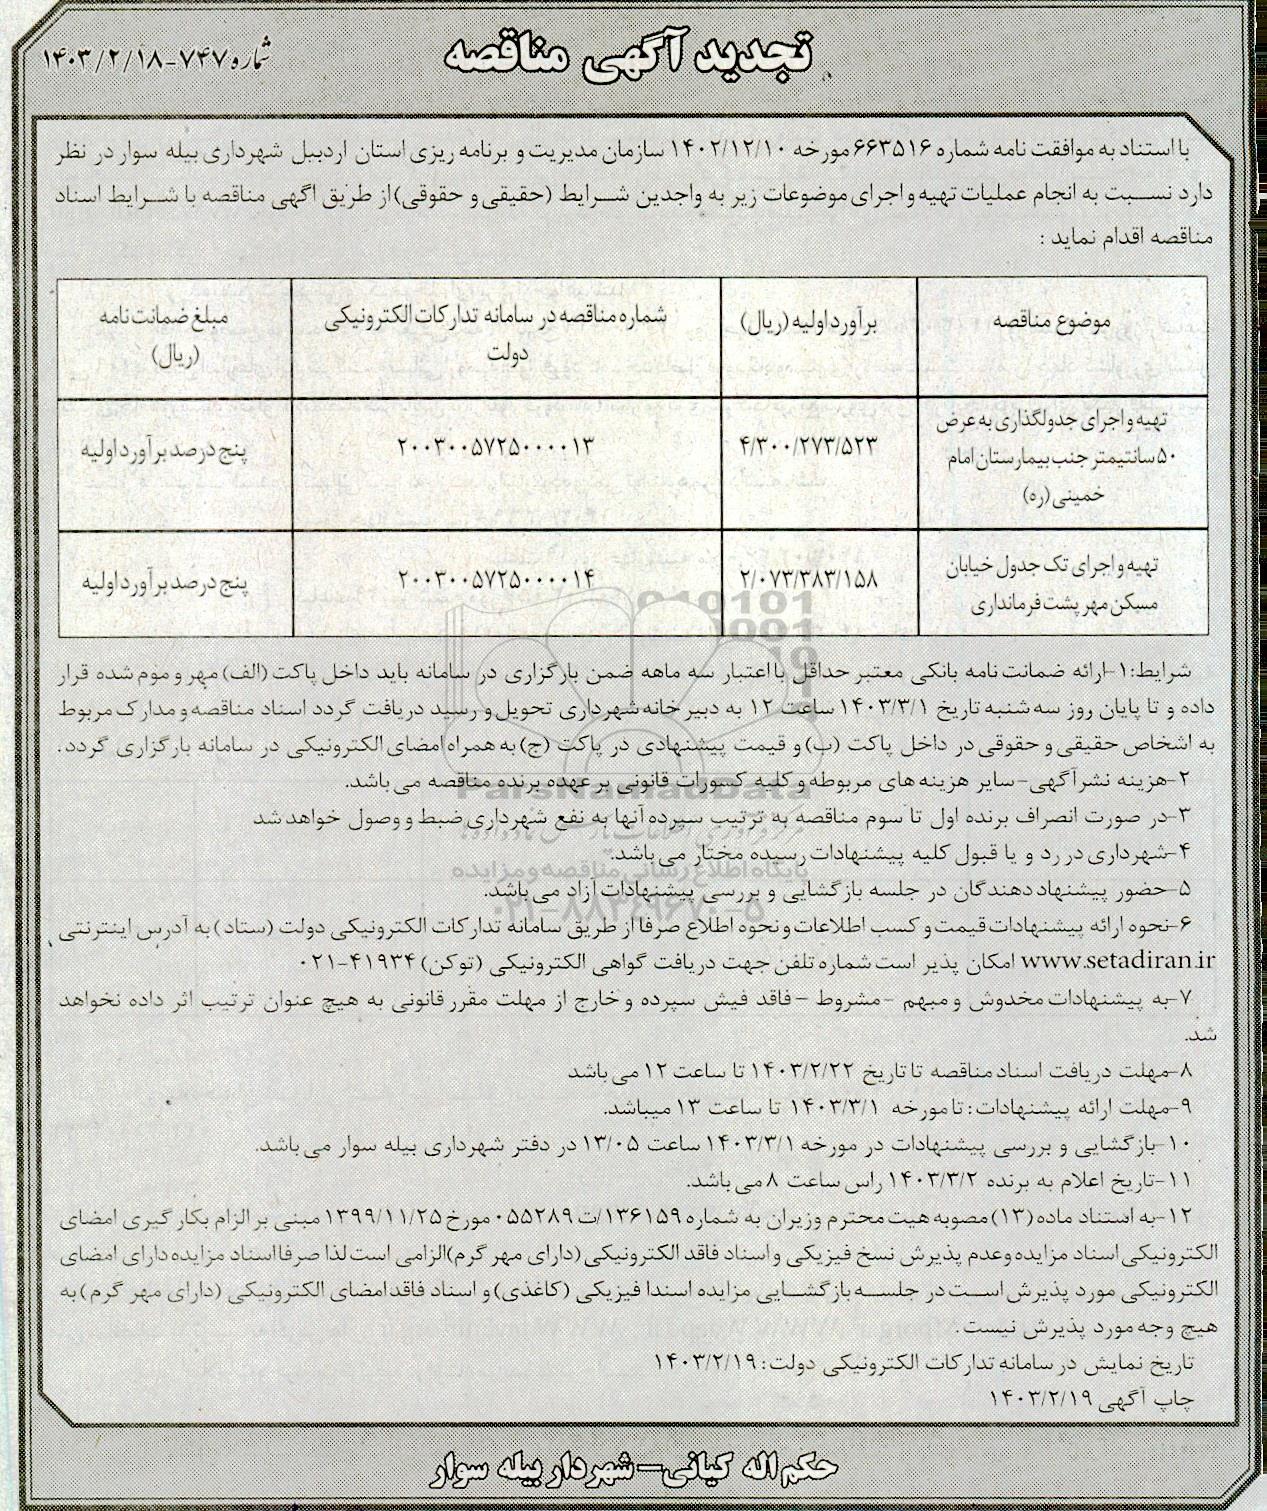 تجدید آگهی مناقصه
شماره ۷۴۷-۱۴۰۳/۲/۱۸
با استناد به موافقت نامه شماره ۶۶۳۵۱۶ مورخه ۱۴۰۲/۱۲/۱۰ سازمان مدیریت و برنامه ریزی استان اردبیل شهرداری بیله سوار در نظر
دارد نسبت به انجام عملیات تهیه و اجرای موضوعات زیر به واجدین شرایط (حقیقی و حقوقی) از طریق آگهی مناقصه با شرایط اسناد
مناقصه اقدام نماید :
موضوع مناقصه
برآورد اولیه (ریال)
شماره مناقصه در سامانه تدارکات الکترونیکی
دولت
مبلغ ضمانت نامه
(ریال)
تهیه و اجرای جدولگذاری به عرض
۵۰ سانتیمتر جنب بیمارستان امام
خمینی (ره)
۴/۳۰۰/۲۷۳/۵۲۳
۲۰۰۳۰۰۵۷۲۵۰۰۰۰۱۳
پنج درصد برآورد اولیه
تهیه و اجرای تک جدول خیابان
مسکن مهر پشت فرمانداری
۲/۰۷۳/۳۸۳/۱۵۸
۲۰۰۳۰۰۵۷۲۵۰۰۰۰۱۴
پنج درصد برآورد اولیه
شرایط: ۱-ارائه ضمانت نامه بانکی معتبر حداقل با اعتبار سه ماهه ضمن بارگزاری در سامانه باید داخل پاکت (الف) مهر و موم شده قرار
داده و تا پایان روز سه شنبه تاریخ ۱۴۰۳/۳/۱ ساعت ۱۲ به دبیر خانه شهرداری تحویل و رسید دریافت گردد اسناد مناقصه و مدارک مربوط
به اشخاص حقیقی و حقوقی در داخل پاکت (ب) و قیمت پیشنهادی در پاکت (ج) به همراه امضای الکترونیکی در سامانه بارگزاری گردد.
۲-هزینه نشر آگهی-سایر هزینه های مربوطه و کلیه کسورات قانونی بر عهده برنده مناقصه می باشد.
۳-در صورت انصراف برنده اول تا سوم مناقصه به ترتیب سپرده آنها به نفع شهرداری ضبط و وصول خواهد شد
۴-شهرداری در رد و یا قبول کلیه پیشنهادات رسیده مختار می باشد.
۵-حضور پیشنهاد دهندگان در جلسه بازگشایی و بررسی پیشنهادات آزاد می باشد.
۶-نحوه ارائه پیشنهادات قیمت و کسب اطلاعات و نحوه اطلاع صرفا از طریق سامانه تدارکات الکترونیکی دولت (ستاد) به آدرس اینترنتی
www.setadiran.ir امکان پذیر است شماره تلفن جهت دریافت گواهی الکترونیکی (توکن) ۴۱۹۳۴-۰۲۱
۷-به پیشنهادات مخدوش و مبهم -مشروط -فاقد فیش سپرده و خارج از مهلت مقرر قانونی به هیچ عنوان ترتیب اثر داده نخواهد
شد.
۸-مهلت دریافت اسناد مناقصه تا تاریخ ۱۴۰۳/۲/۲۲ تا ساعت ۱۲ می باشد
۹-مهلت ارائه پیشنهادات: تا مورخه ۱۴۰۳/۳/۱ تا ساعت ۱۳ میباشد.
۱۰-بازگشایی و بررسی پیشنهادات در مورخه ۱۴۰۳/۳/۱ ساعت ۱۳/۰۵ در دفتر شهرداری بیله سوار می باشد.
۱۱-تاریخ اعلام به برنده ۱۴۰۳/۳/۲ راس ساعت ۸ می باشد.
۱۲-به استناد ماده (۱۳) مصوبه هیت محترم وزیران به شماره ۱۳۶۱۵۹/ت ۰۵۵۲۸۹ مورخ ۱۳۹۹/۱۱/۲۵ مبنی بر الزام بکار گیری امضای
الکترونیکی اسناد مزایده و عدم پذیرش نسخ فیزیکی و اسناد فاقد الکترونیکی (دارای مهر گرم) الزامی است لذا صرفا اسناد مزایده دارای امضای
الکترونیکی مورد پذیرش است در جلسه بازگشایی مزایده اسندا فیزیکی (کاغذی) و اسناد فاقد امضای الکترونیکی (دارای مهر گرم) به
هیچ وجه مورد پذیرش نیست.
تاریخ نمایش در سامانه تدارکات الکترونیکی دولت: ۱۴۰۳/۲/۱۹
چاپ آگهی ۱۴۰۳/۲/۱۹
حکم اله کیانی-شهردار بیله سوار
ParsNamadData
پایگاه اطلاع رسانی مناقصه و مزایده
۰۲۱-۸۸۳۴۹۶۷۰-۵